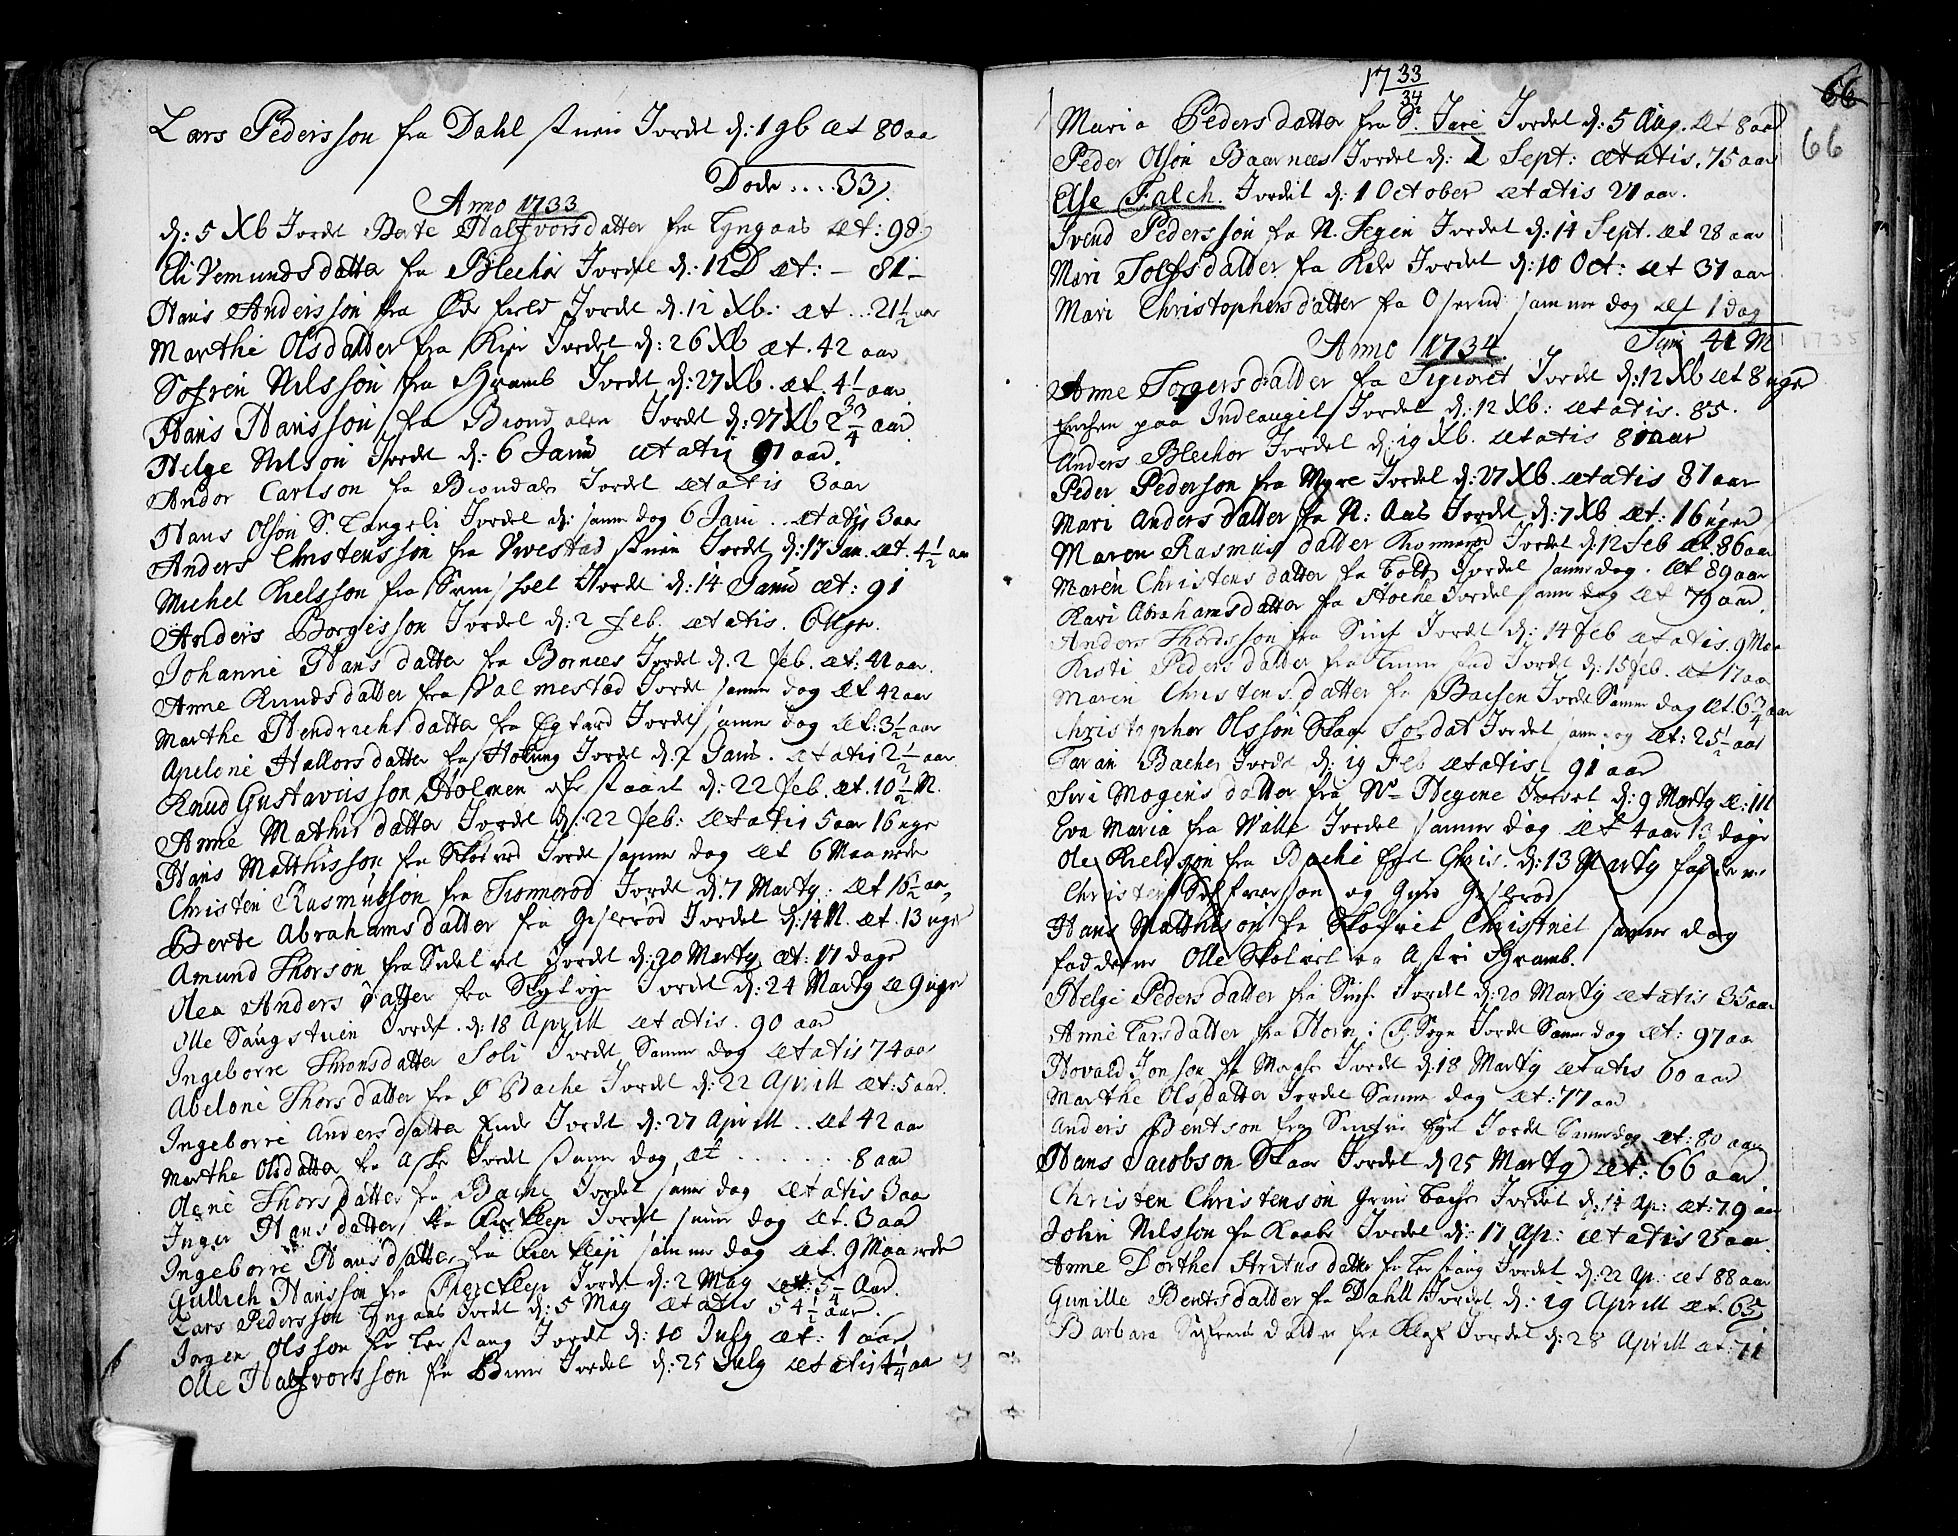 Lars Pedersson fra Dahl stuen Jordet d: 1 9b æt 80 aar
Døde .... 33.
Anno 1733
d: 5 Xb Jordet Berte Halfvorsdatter fra Lyngaas æt: 98
Eli Vemundsdatter fra Blechor Jordet d: 12 D æt: – 81 –
Hans Andersson fra Jordet d. 12 Xb: æt ... 21 1/2 aar
Marthe Olsdatter fra Kier Jordet d: 26 Xb æt. 42 aar
Sofren Nilsson fra Gramb Jordet d: 27 Xb. æt. 4 1/2 aar
Hans Hansson fra Brondalen Jordet d: 27 Xb 2 3/4 aar
Helge Nilson Jordet d: 6 Janu ætatis 91 aar.
Andor Carlson fra Brondalen Jordet ætatis 3 aar
Hans Olson S. Langeli Jordet d: samme dag 6 Janu .. ætatis 3 aar
Anders Christensson fra Vivestad stuen Jordet d: 17 Jan. æt. 4 1/2 aar
Michel Kielsson fra Jordet d: 14 Janu æt: 91
Anders Borgersson Jordet d: 2 Feb. ætatis. 6 uger.
Johanne Hansdatter fra Bornees Jordet d. 2 Feb. æt: 41 aar.
Anne Knudsdatter fra Valmestad Jordet samme dag æt 42 aar
Marthe Hendrichsdatter fra Jordet samme dag æt: 3 1/2 aar
Apeloni Hallorsdatter fra Jordet d. 7 Janu. ætatis 2 1/2 aar
Knud Gustavusson Holmen d. 22 Feb. æt. 10 1/2 M.
Anne Mathisdatter Jordet d: 22 Feb: ætatis 5 aar 16 uger
Hans Matthisson fra Skotvet Jordet samme dag æt 6 Maaneder
Christen Rasmusson fra Tronnerod Jordet d. 7 Marty: æt 16 1/2 aar
Berte Abrahamsdatter fra Giserød Jordet d: 14 M. æt. 13 uger
Amund Thorson fra Jordet d: 20 Marty æt: 17 dage
Olea Andersdatter fra Jordet d: 24 Marty æ 9 uger
Olle Saugstuen Jordet. d: 18 Aprill ætatis. 90 aar
Ingeborre Thronsdatter Soli Jordet Samme dag ætatis 74 aar
Abelone Thorsdatter fra Ø Bache Jordet d: 22 Aprill æt: 5 aar.
Ingeborre Andersdatter Ende Jordet d: 27 Aprill .. æt 42 aar
Marthe Olsdatter fra Aske Jordet samme dag æt ....... 8 aar
Olene Thorsdatter fra Bache Jordet samme dag ætatis 3 aar
Inger Hansdatter fra Kierklep Jordet samme dag æt. 3 aar
Ingeborre Hansdatter fra Kierklep samme dag æt. 9 Maaneder
Gullich Hansson fra Jordet d: 2 May æt: 5 1/4 Aar.
Lars Pedersson Lyngaas Jordet d: 5 May ætatis 54 1/2 aar.
Jorgen Olsson fra Lerstang Jordet d: 10 July æt: 1 aar
Olle Halfvorsson fra Jordet d: 25 July ætatis 4 1/4 aar
1733/34
66
66
Maria Pedersdatter fra S. Jare Jordet d: 5 Aug. æt 8 aar
Peder Olson Baarnees Jordet d: 2 Sept: ætatis. 75 aar
Else Falch. Jordet d: 1 October ætatis 21 aar.
Svend Pedersson fra N. Jordet d: 14 Sept. æt 28 aar
Mari Tolfsdatter fra Jordet d: 10 Oct: æt 31 aar
Mari Christophersdatter fra Oserud samme dag æt 1 dag
Sum 41 M
Anno 1734
1735
Anne Torgersdatter fra Jordet d: 12 Xb æt 8 uger
Enchen paa Indlaugit Jordet d: 12 Xb: ætatis. 85.
Anders Blechor Jordet d: 19 Xb. ætatis 81 aar
Peder Pederson fra Myre Jordet d: 27 Xb. ætatis 81 aar
Mari Andersdatter fra N: Aas Jordet d: 7 Xb æt: 16 uger
Maren Rasmusdatter Jordet d: 12 Feb æt. 86 aar
Maren Christensdatter fra Jordet samme dag. æt 89 aar
Kari Abrahamsdatter fra Jordet samme dag æt 79 aar.
Anders Thordsson fra Jordet d: 14 Feb ætatis. 9 Maa
Kirsti Pedersdatter fra Jordet d: 15 Feb. æt 17 aar
Maren Christensdatter fra Jordet Samme dag æt. 6 3/4 aar
Christopher Olsson Skaar Soldat Jordet samme dag æt: 25 1/2 aar
Taran Bacher Jordet d: 19 Feb ætatis 91 aar
Siri Mogensdatter fra N. Hegene Jordet d: 9 Marty æ: 111
Eva Maria fra Walle Jordet samme dag æt 4 aar 13 dage
Ole Kieldson fra Bache Chris. d: 13 Marty fadderne
Christen Solfverson og Guro Giserød
Hans Matthison fra Skotvet Christnet samme dag
fadderne Olle Skotvet og Astri Gramb.
Helge Pedersdatter fra Jordet d: 20 Marty ætatis 35 aar
Anne Larsdatter fra Horn i F. Sogn Jordet Samme dag æt: 97 aar
Hovald Jonson fra Jordet d: 18 Marty ætatis 60 aar
Marthe Olsdatter Jordet Samme dag æt: 77 aar
Anders Bentson fra Jordet Samme dag æt: 80 aar
Hans Jacobson Skaar Jordet d 25 Marty æt: 66 aar
Christen Christenson Jordet d: 14 Ap: æt: 79 aar
John Nilsson fra Jordet d: 17 Ap: ætatis 25 aar
Anne Dorthe fra Lerstang Jordet d: 22 Ap: æt 88 aar
Gunille Bentsdatter fra Dahll Jordet d: 29 Aprill æt. 65
Barbara datter fra Jordet d: 28 Aprill æt: 71